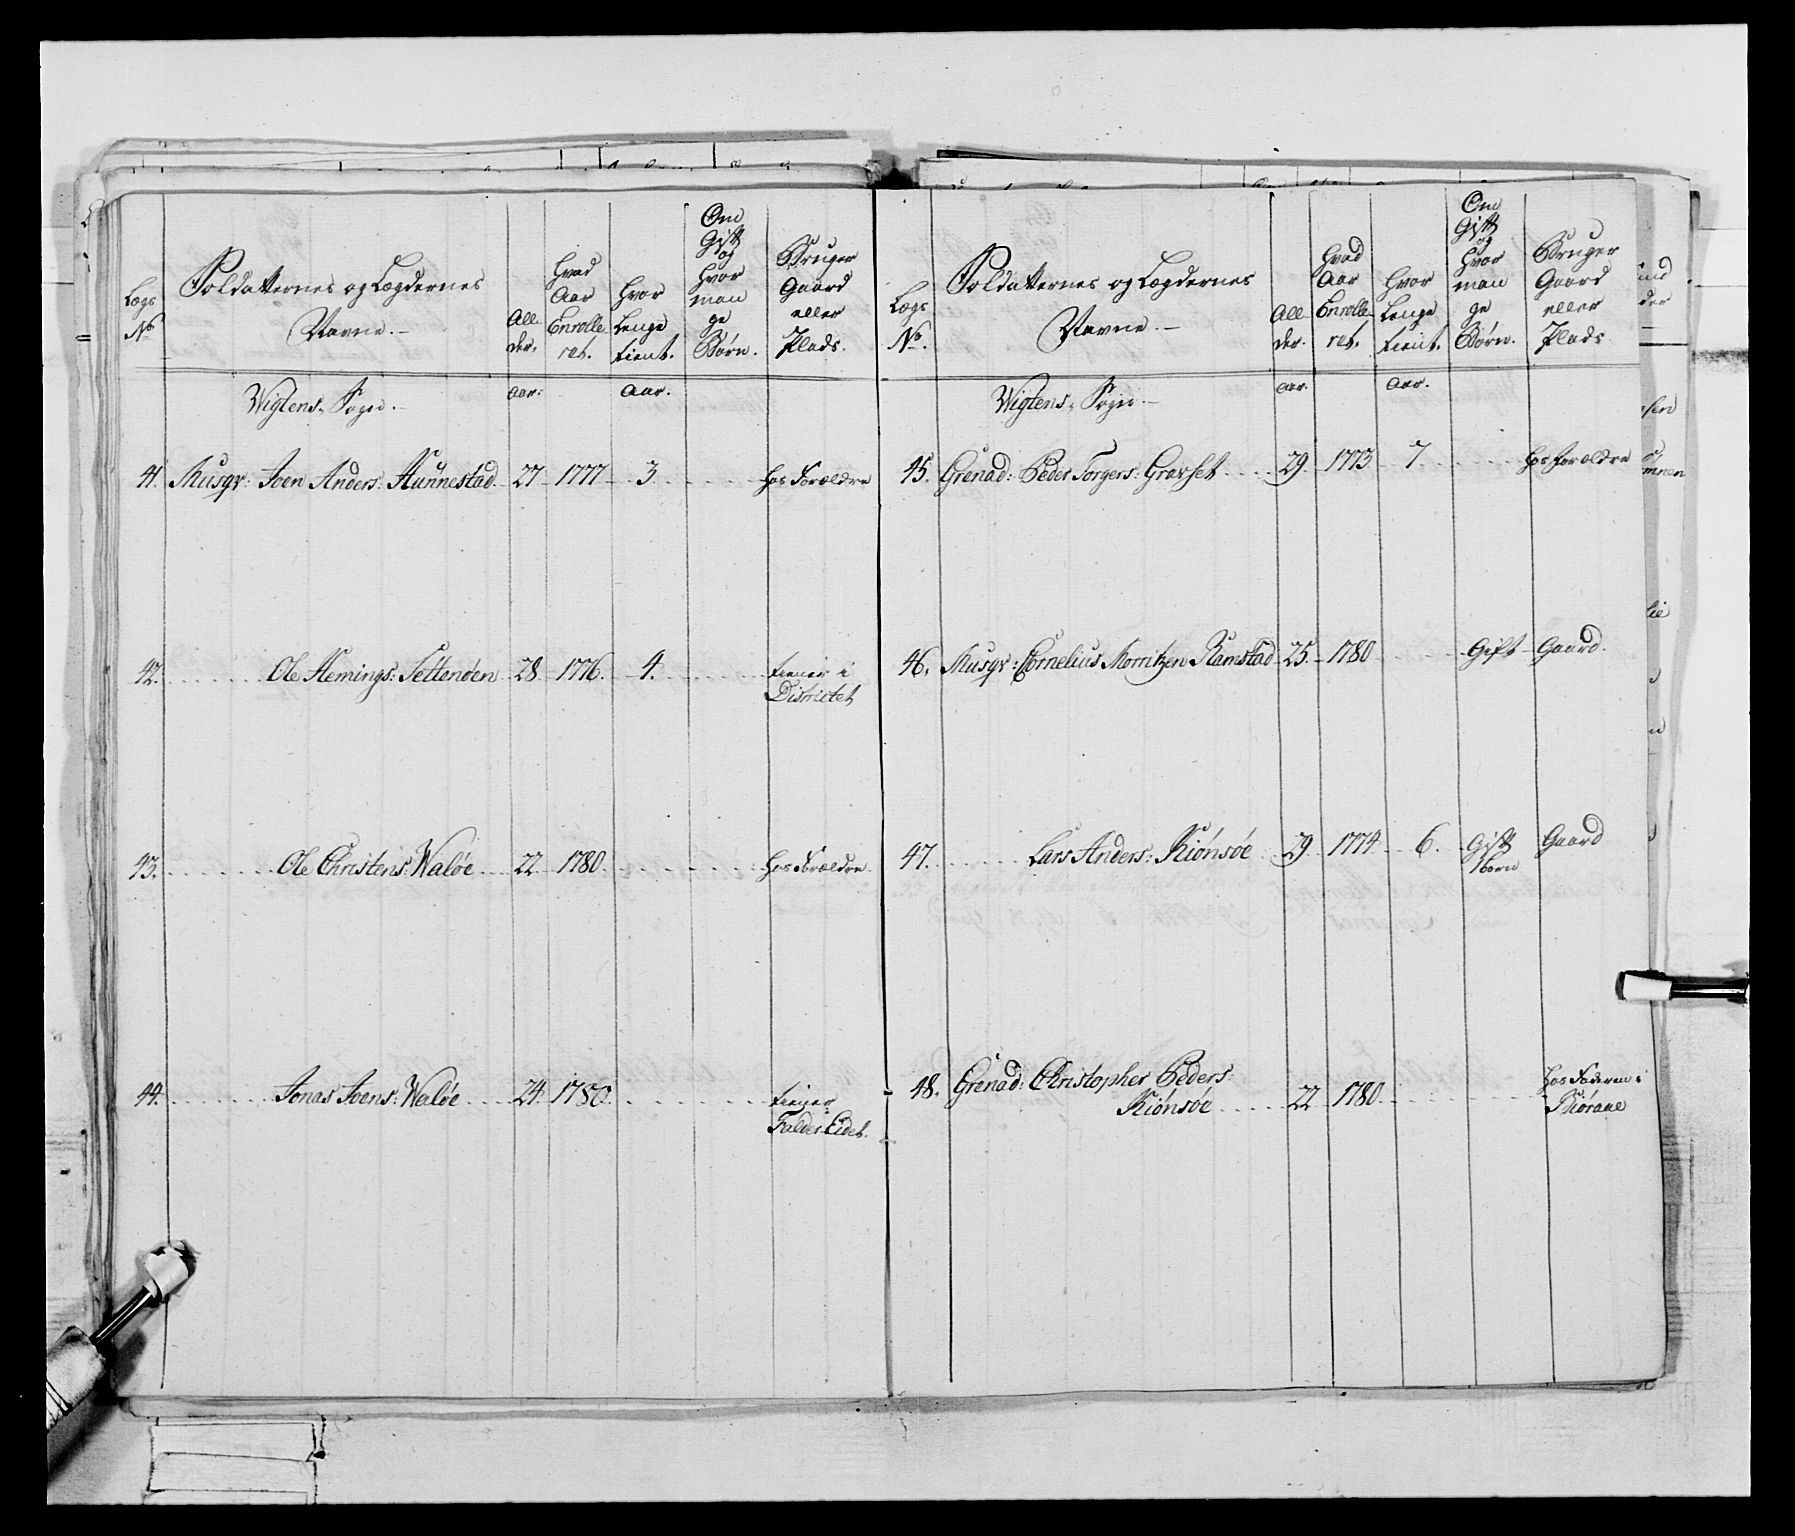 Lægs No
Soldatternes og Lægdernes Navne.
Allder.
Hvad Aar Enrolleret.
Hvor Lenge tient.
Om Gift og Hvor mange Børn.
Bruger Gaard eller Plads.
Wigtens Sogn.
aar.
aar.
41. Musqr: Joen Anders: Hunnestad 27 1777 3 hos Forældre
42. Ole Hemings: Settenøen 28 1776. 4. tiener i
Districtet
43. Ole Christens: Waløe 22 1780 hos Forældre
44. Jonas Joens: Waløe 24 1780 tiener
Falder Eidet.
Lægs No.
Soldatternes og Lægdernes Navne.
Allder.
Hvad Aar Enrolleret.
Hvor Lenge tient.
Om Gift og Hvor mange Børn.
Bruger Gaard eller Plads
Wigtens Sogn.
aar.
aar.
45. Grenad: Peder Torgers: Gravset 29 1773 7 hos forældre
46. Musqr: Cornelius Morritzen Ramstad 25 1780 Gift Gaard.
47. Lars Anders: Kiønsøe 29 1774 6. Gift Gaard
1 børn
48. Grenad: Christopher Peders
Kiønsøe 22 1780 hos Faderen i